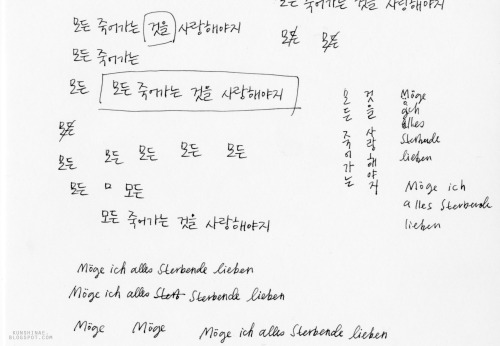 모든 죽어가는 것을 사랑해야지
모든 죽어가는 것을 사랑해야지
모든 모든
모든 죽어가는
모든 모든 죽어가는 것을 사랑해야지
모든
모든 모든 모든 모든 모든
모든 ㅁ 모든
모든 죽어가는 것을 사랑해야지
모든 죽어가는
것을 사랑해야지
Möge
ich
alles
sterbende
lieben
Möge ich
alles Sterbende
lieben
Möge ich alles Sterbende lieben
Möge ich alles Sterb Sterbende lieben
Möge Möge Möge ich alles Sterbende lieben
SUNSHINAE.
BLOGSPOT.COM